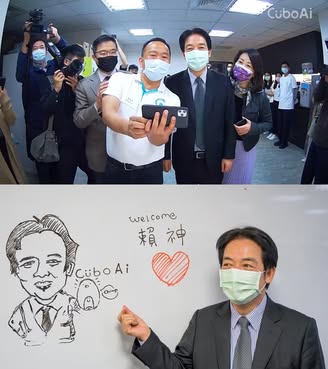 CuboAi
welcome
賴神
CuboAi